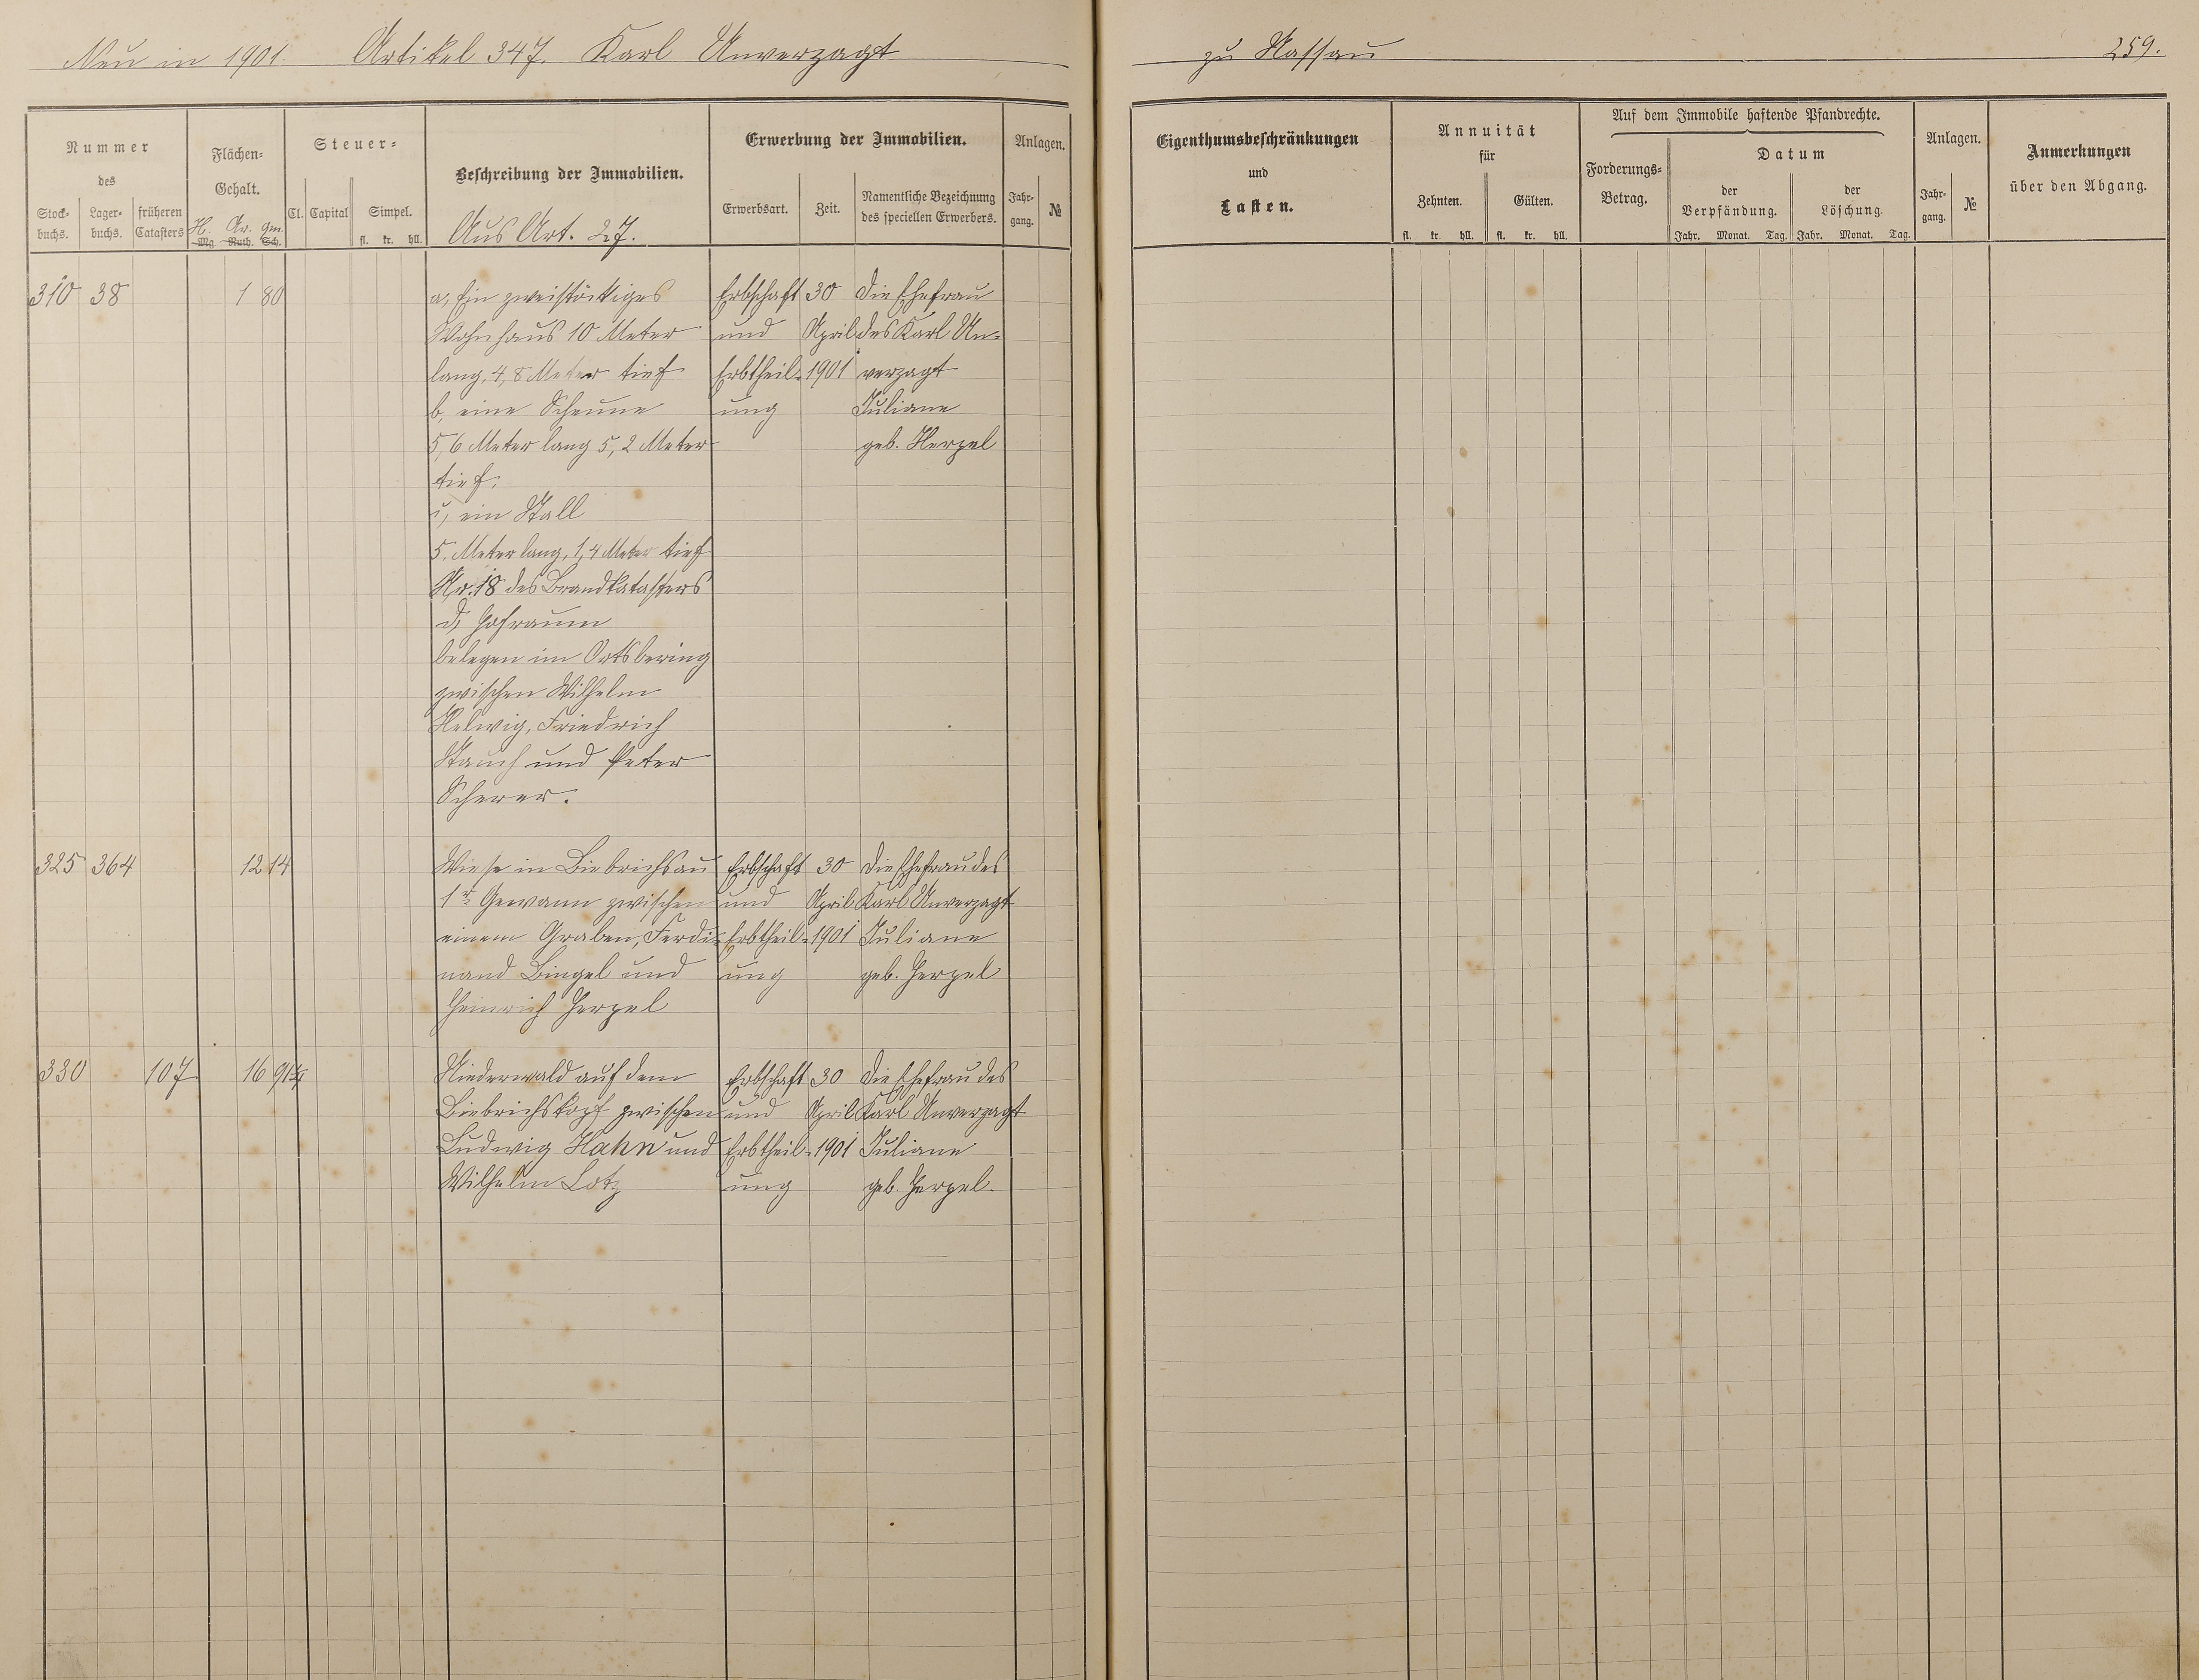 Neu in 1901. Artikel 347. Karl Unverzagt zu Nassau 259.
Nummer
des
Stock-
buchs.
Lager-
buchs.
früheren
Catasters
Flächen-
Gehalt.
H. Ar. qm.
Mg. Ruth. Sch.
Steuer-
Cl. Capital Simpel.
fl. kr. hll.
Beschreibung der Immobilien.
Aus Art. 27.
Erwerbung der Immobilien.
Erwerbsart. Zeit. Namentliche Bezeichnung
des speciellen Erwerbers.
Anlagen.
Jahr-
gang.
№
Eigenthumsbeschränkungen
und
Lasten.
Annuität
für
Zehnten. Gülten.
fl. kr. hll. fl. kr. hll.
Auf dem Immobile haftende Pfandrechte.
Forderungs-
Betrag.
Datum
der
Verpfändung.
der
Löschung.
Jahr. Monat. Tag. Jahr. Monat. Tag.
Anlagen.
Jahr-
gang.
№
Anmerkungen
über den Abgang.
310 38 1 80 a, Ein zweistöckiges Erbschaft 30 Die Ehefrau
Wohnhaus 10 Meter und April des Karl Un-
lang, 4,8 Meter tief Erbtheil- 1901 verzagt
b, eine Scheune ung Juliane
5,6 Meter lang 5,2 Meter geb. Herzel
tief.
c, ein Stall
5. Meter lang, 1,4 Meter tief
Nr. 18 des Brandkatasters
d, Hofraum
belegen im Ortsbering
zwischen Wilhelm
Helwig, Friedrich
Stauch und Peter
Scherer.
325 364 12 14 Wiese in Biebrichsau Erbschaft 30 Die Ehefrau des
1r Gewann zwischen und April Karl Unverzagt
einem Graben, Ferdi- Erbtheil- 1901 Juliane
nand Bingel und ung geb. Herzel
Heinrich Herzel
330 107 16 91 Niederwald auf dem Erbschaft 30 Die Ehefrau des
Biebrichskopf zwischen und April Karl Unverzagt
Ludwig Hahn und Erbtheil- 1901 Juliane
Wilhelm Lotz ung geb. Herzel.